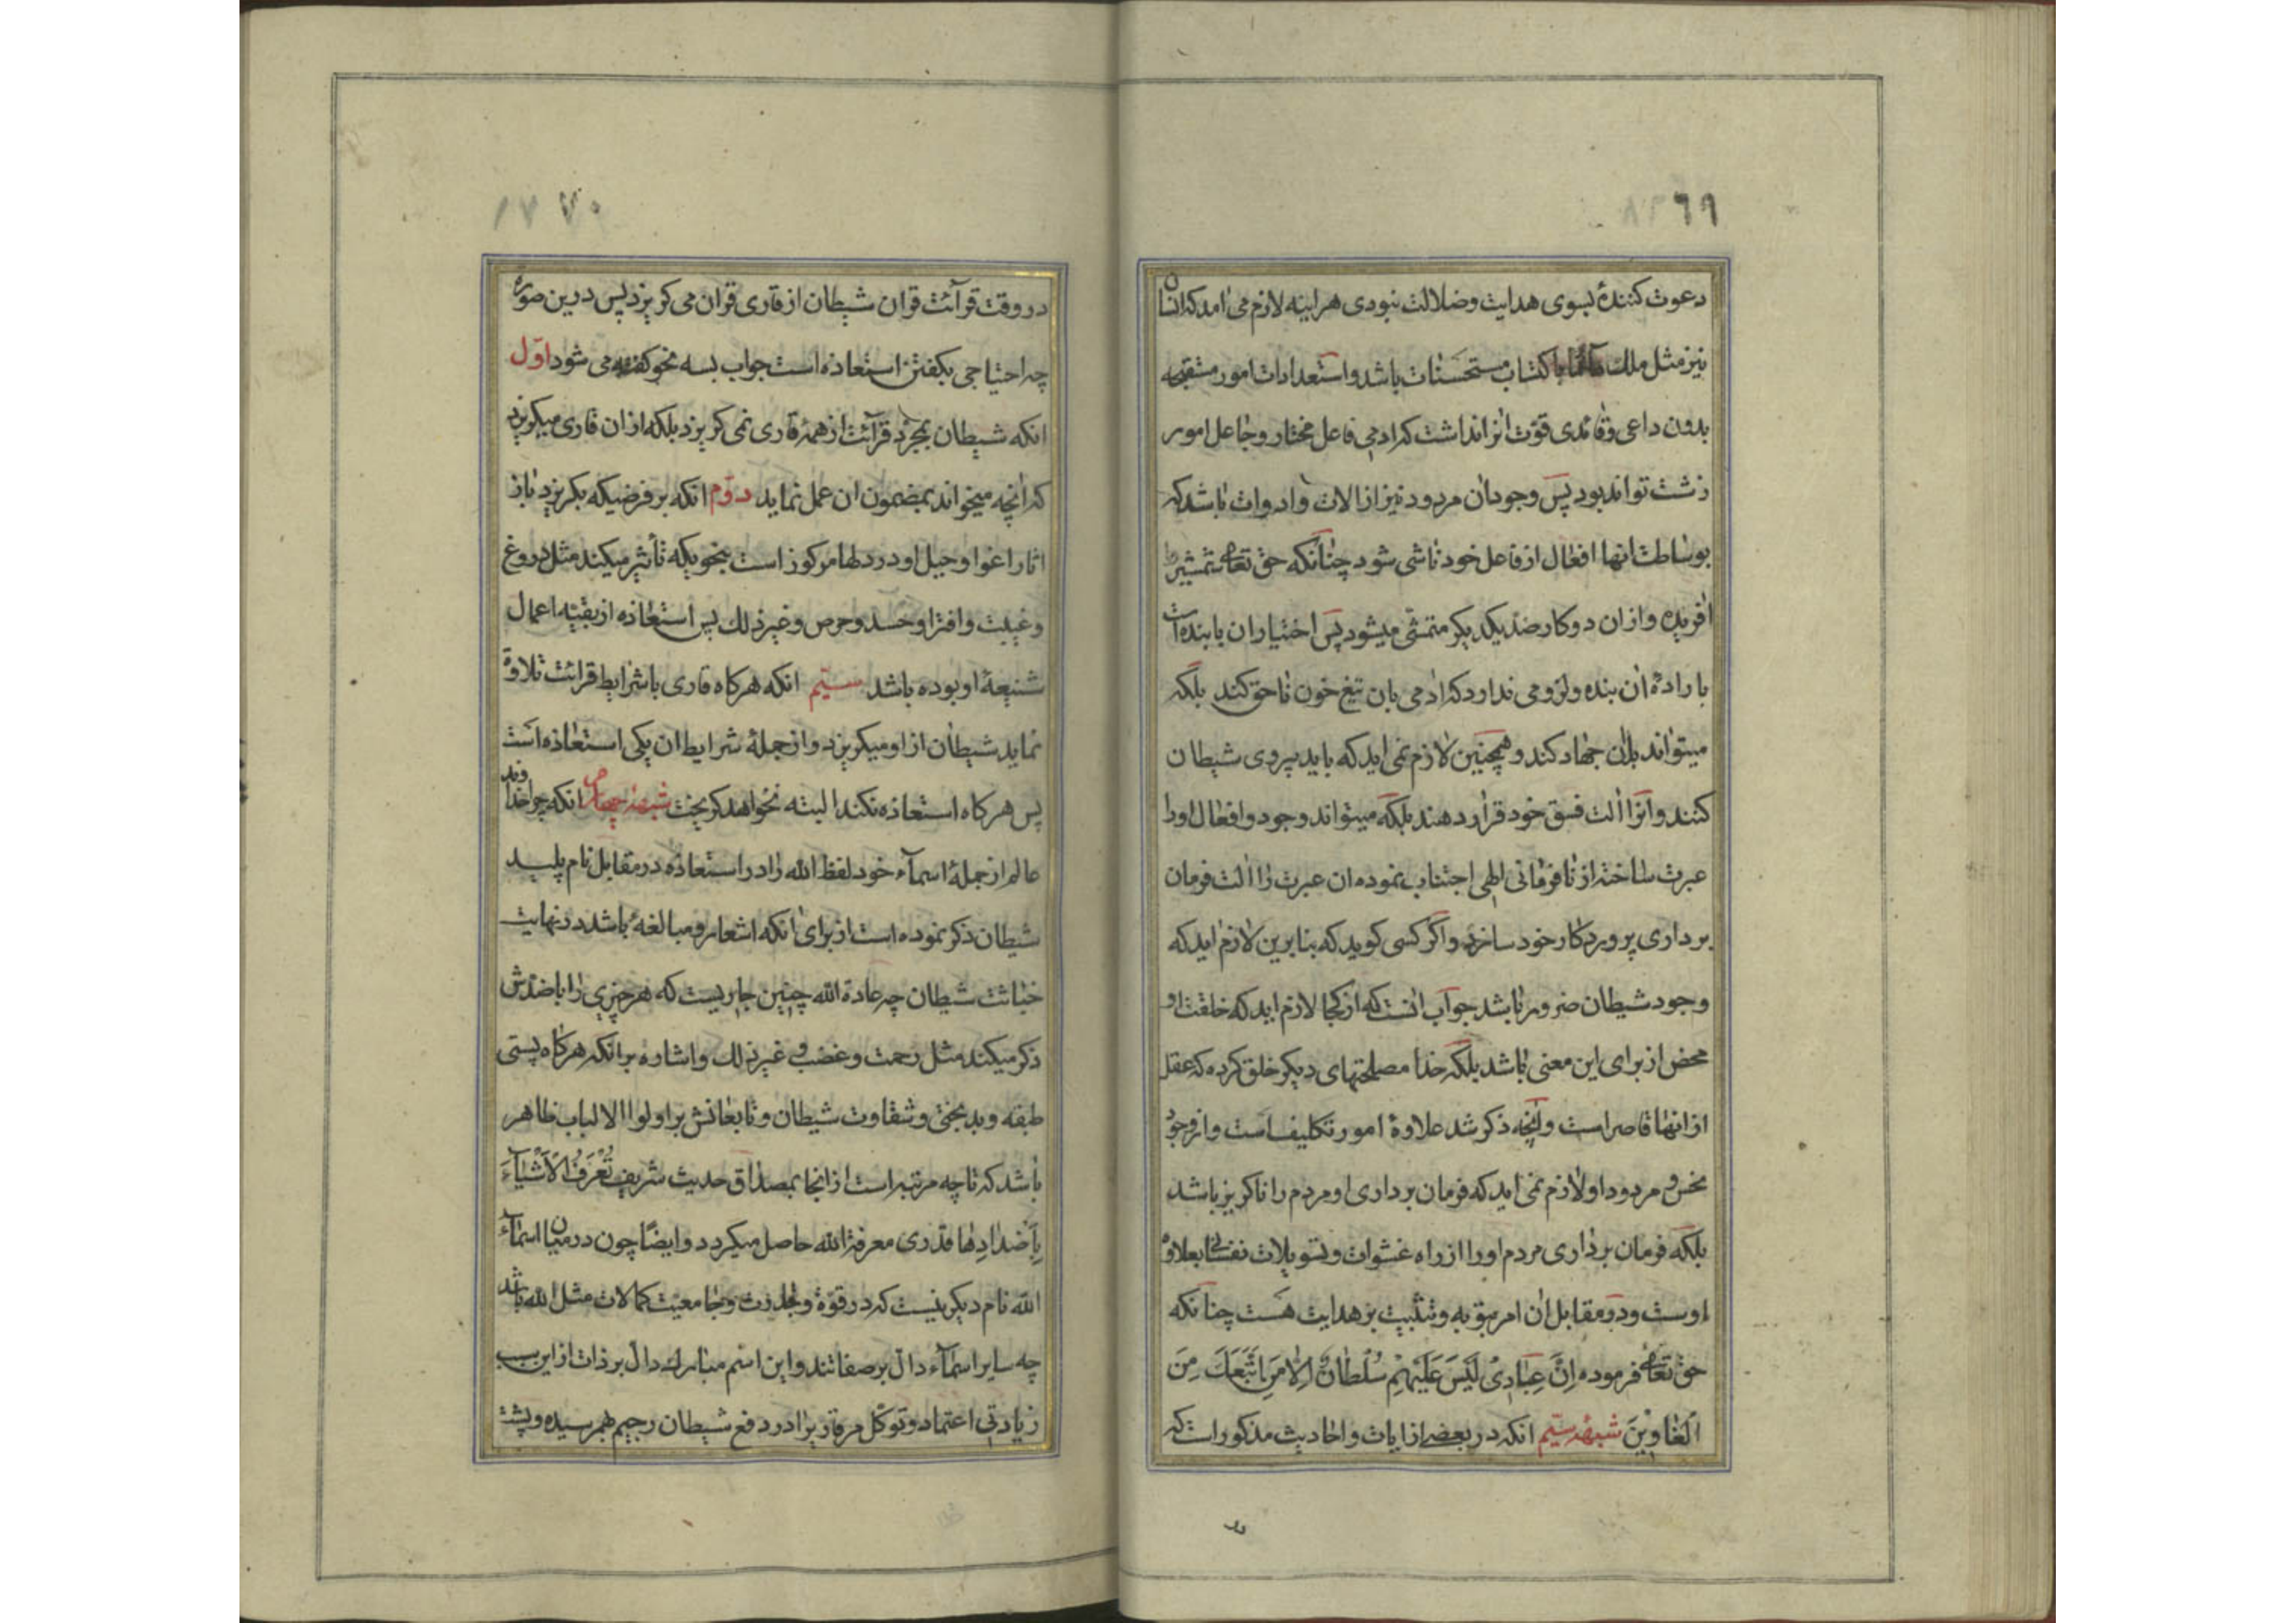 ٦٩
دعوت كنندهٔ بسوى هدايت وضلالت نبودى هراينه لازم مى امد كه انسان
نيز مثل ملك باكتساب مستحسنات باشد واستعدادات امور مستقبحه
بدون داعى وقائدى قوت انرا نداشت كه ادمى فاعل مختار وجاعل امور
زشت تواند بود پس وجود ان مردود نيز از الات وادوات باشد كه
بوساطت انها افعال از فاعل خود ناشى شود چنانكه حق تعالى شمشير را
افريده وازان دو كار ضد يكديكر متمشى ميشود پس اختيار ان با بنده است
با رادهٔ ان بنده ولزومى ندارد كه ادمى بان تيغ خون ناحق كند بلكه
ميتواند بان جهاد كند وهمچنين لازم نمى ايد كه بايد پيروى شيطان
كنند وانرا الت فسق خود قرار دهند بلكه ميتواند وجود وافعال اورا
عبرت ساخته از نافرمانى الهى اجتناب نموده ان عبرت را الت فرمان
بردارى پروردكار خود سازد واكر كسى كويد كه بنابرين لازم ايد كه
وجود شيطان ضرور باشد جواب انست كه از كجا لازم ايد كه خلقت او
محض از براى اين معنى باشد بلكه خدا مصلحتهاى ديكر خلق كرده كه عقل
از انها قاصر است وانچه ذكر شد علاوهٔ امور تكليف است واز وجود
نحس ومردود او لازم نمى ايد كه فرمان بردارى او مردم را ناكريز باشد
بلكه فرمان بردارى مردم اورا از راه غشوات وتسويلات نفسانى بعلاوه
اوست ودر مقابل ان امر بتوبه وتثبيت بر هدايت هست چنانكه
حق تعالى فرموده اِنَّ عِبَادِىْ لَيْسَ عَلَيْهِمْ سُلْطَانٌ اِلَّا مَنِ اتَّبَعَكَ مِنَ
الْغَاوِيْنَ شبههٔ سيّم انكه در بعضى از ايات واحاديث مذكور است كه
در
٧٠
در وقت قرآئت قران شيطان از قارى قران مى كريزد پس درين صورة
چه احتياجى بكفتن استعاذه است جواب بسه نحو كفته مى شود اوّل
انكه شيطان بمجرد قرآئت از همهٔ قارى نمى كريزد بلكه از ان قارى ميكريزد
كه انچه ميخواند بمضمون ان عمل نمايد دوّم انكه بر فرضيكه بكريزد باز
اثار اغوا وحيل او در دلها مركوز است بنحويكه تأثير ميكند مثل دروغ
وغيبت وافترا وحسد وحرص وغير ذلك پس استعاذه از بقيهٔ اعمال
شنيعهٔ او بوده باشد سيّم انكه هركاه قارى با شرايط قرائت تلاوة
نمايد شيطان از او ميكريزد واز جملهٔ شرايط ان يكى استعاذه است
پس هركاه استعاذه نكند البته نخواهد كريخت شبههٔ چهارم انكه چرا خداوند
عالم از جملهٔ اسمآء خود لفظ الله را در استعاذه در مقابل نام پليد
شيطان ذكر نموده است از براى انكه اشعار ومبالغهٔ باشد در نهايت
خباثت شيطان چه عادة الله چنين جاريست كه هر چيزى را با ضدش
ذكر ميكند مثل رحمت وغضب وغير ذلك واشاره بر انكه هركاه پستى
طبقه وبدبختى وشقاوت شيطان وتابعانش بر اولوا الالباب ظاهر
باشد كه تا چه مرتبه است از انجا بمصداق حديث شريف تُعْرَفُ الْاَشْيَآءَ
بِاَضْدَادِهَا قدرى معرفة الله حاصل ميكردد وايضًا چون در ميان اسمآء
الله نام ديكر نيست كه در قوّة وجلادت وجامعيت كمالات مثل الله باشد
چه ساير اسمآء دالّ بر صفاتند واين اسم مبارك دالّ بر ذات از اين سبب
زيادتى اعتماد وتوكل مر قاريرا در دفع شيطان رجيم بهم رسيده